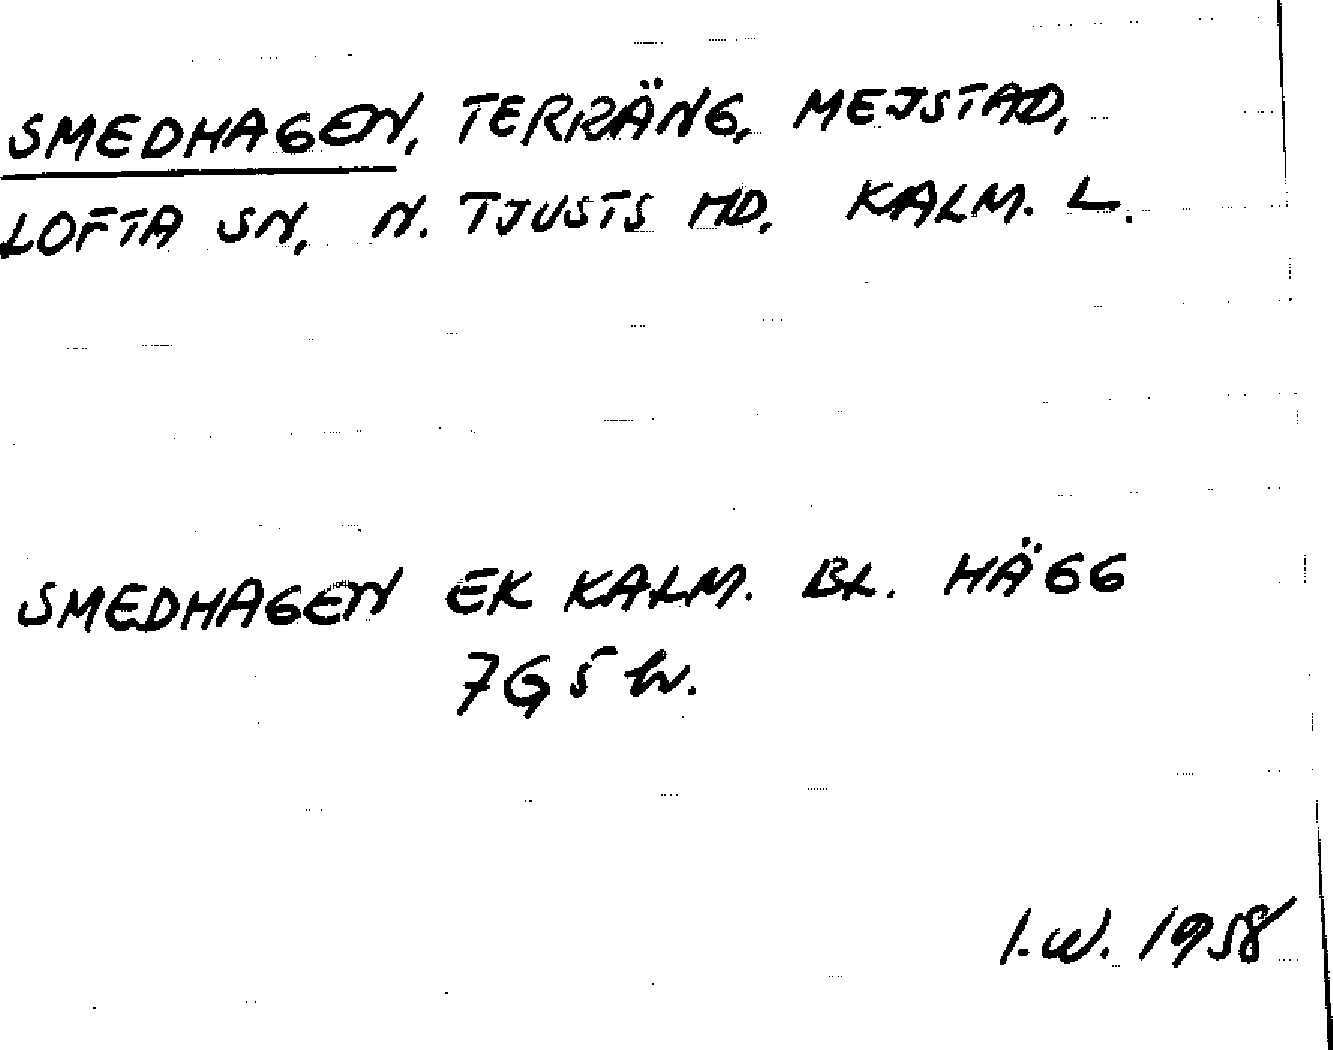 SMEDHAGEN, TERRÄNG, MEJSTAD,
LOFTA SN, N. TJUSTS HD, KALM. L.
SMEDHAGEN EK KALM. BL. HÄGG
7G5 hv.
I.W. 1958